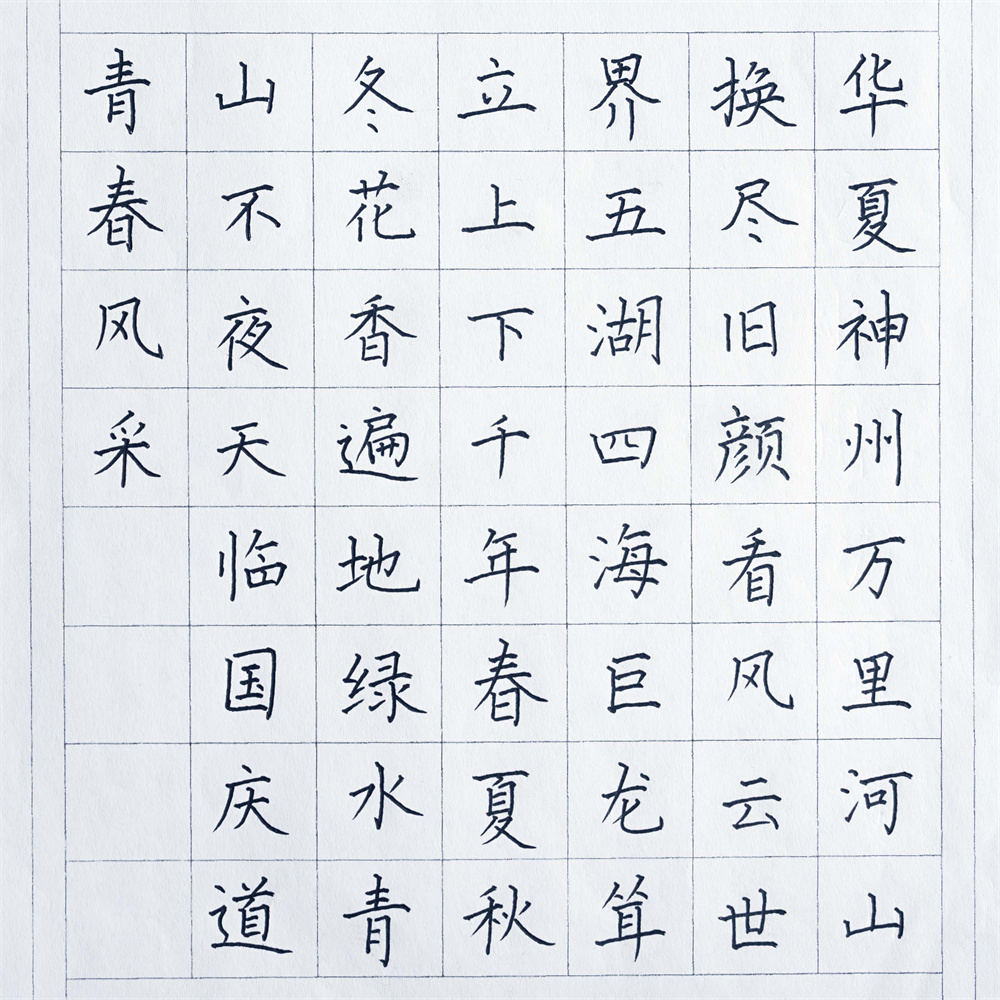 华夏神州万里河山
换尽旧颜看风云世
界五湖四海巨龙耸
立上下千年春夏秋
冬花香遍地绿水青
山不夜天临国庆道
青春风采